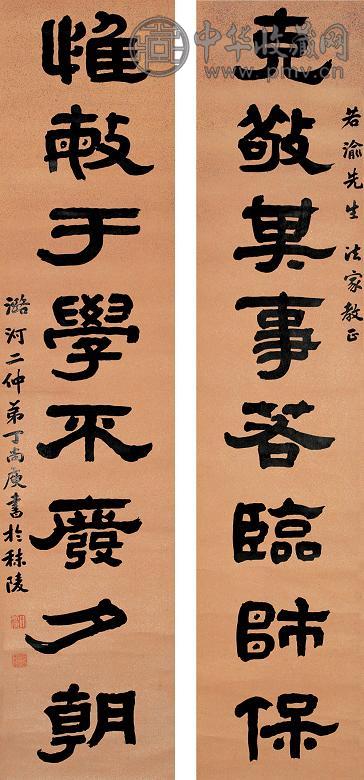 中华收藏网
www.pmv.cn
若渝先生 法家教正
克敬其事若臨師保
惟敏于學不廢夕朝
潞河二仲弟丁尚庚書於秣陵